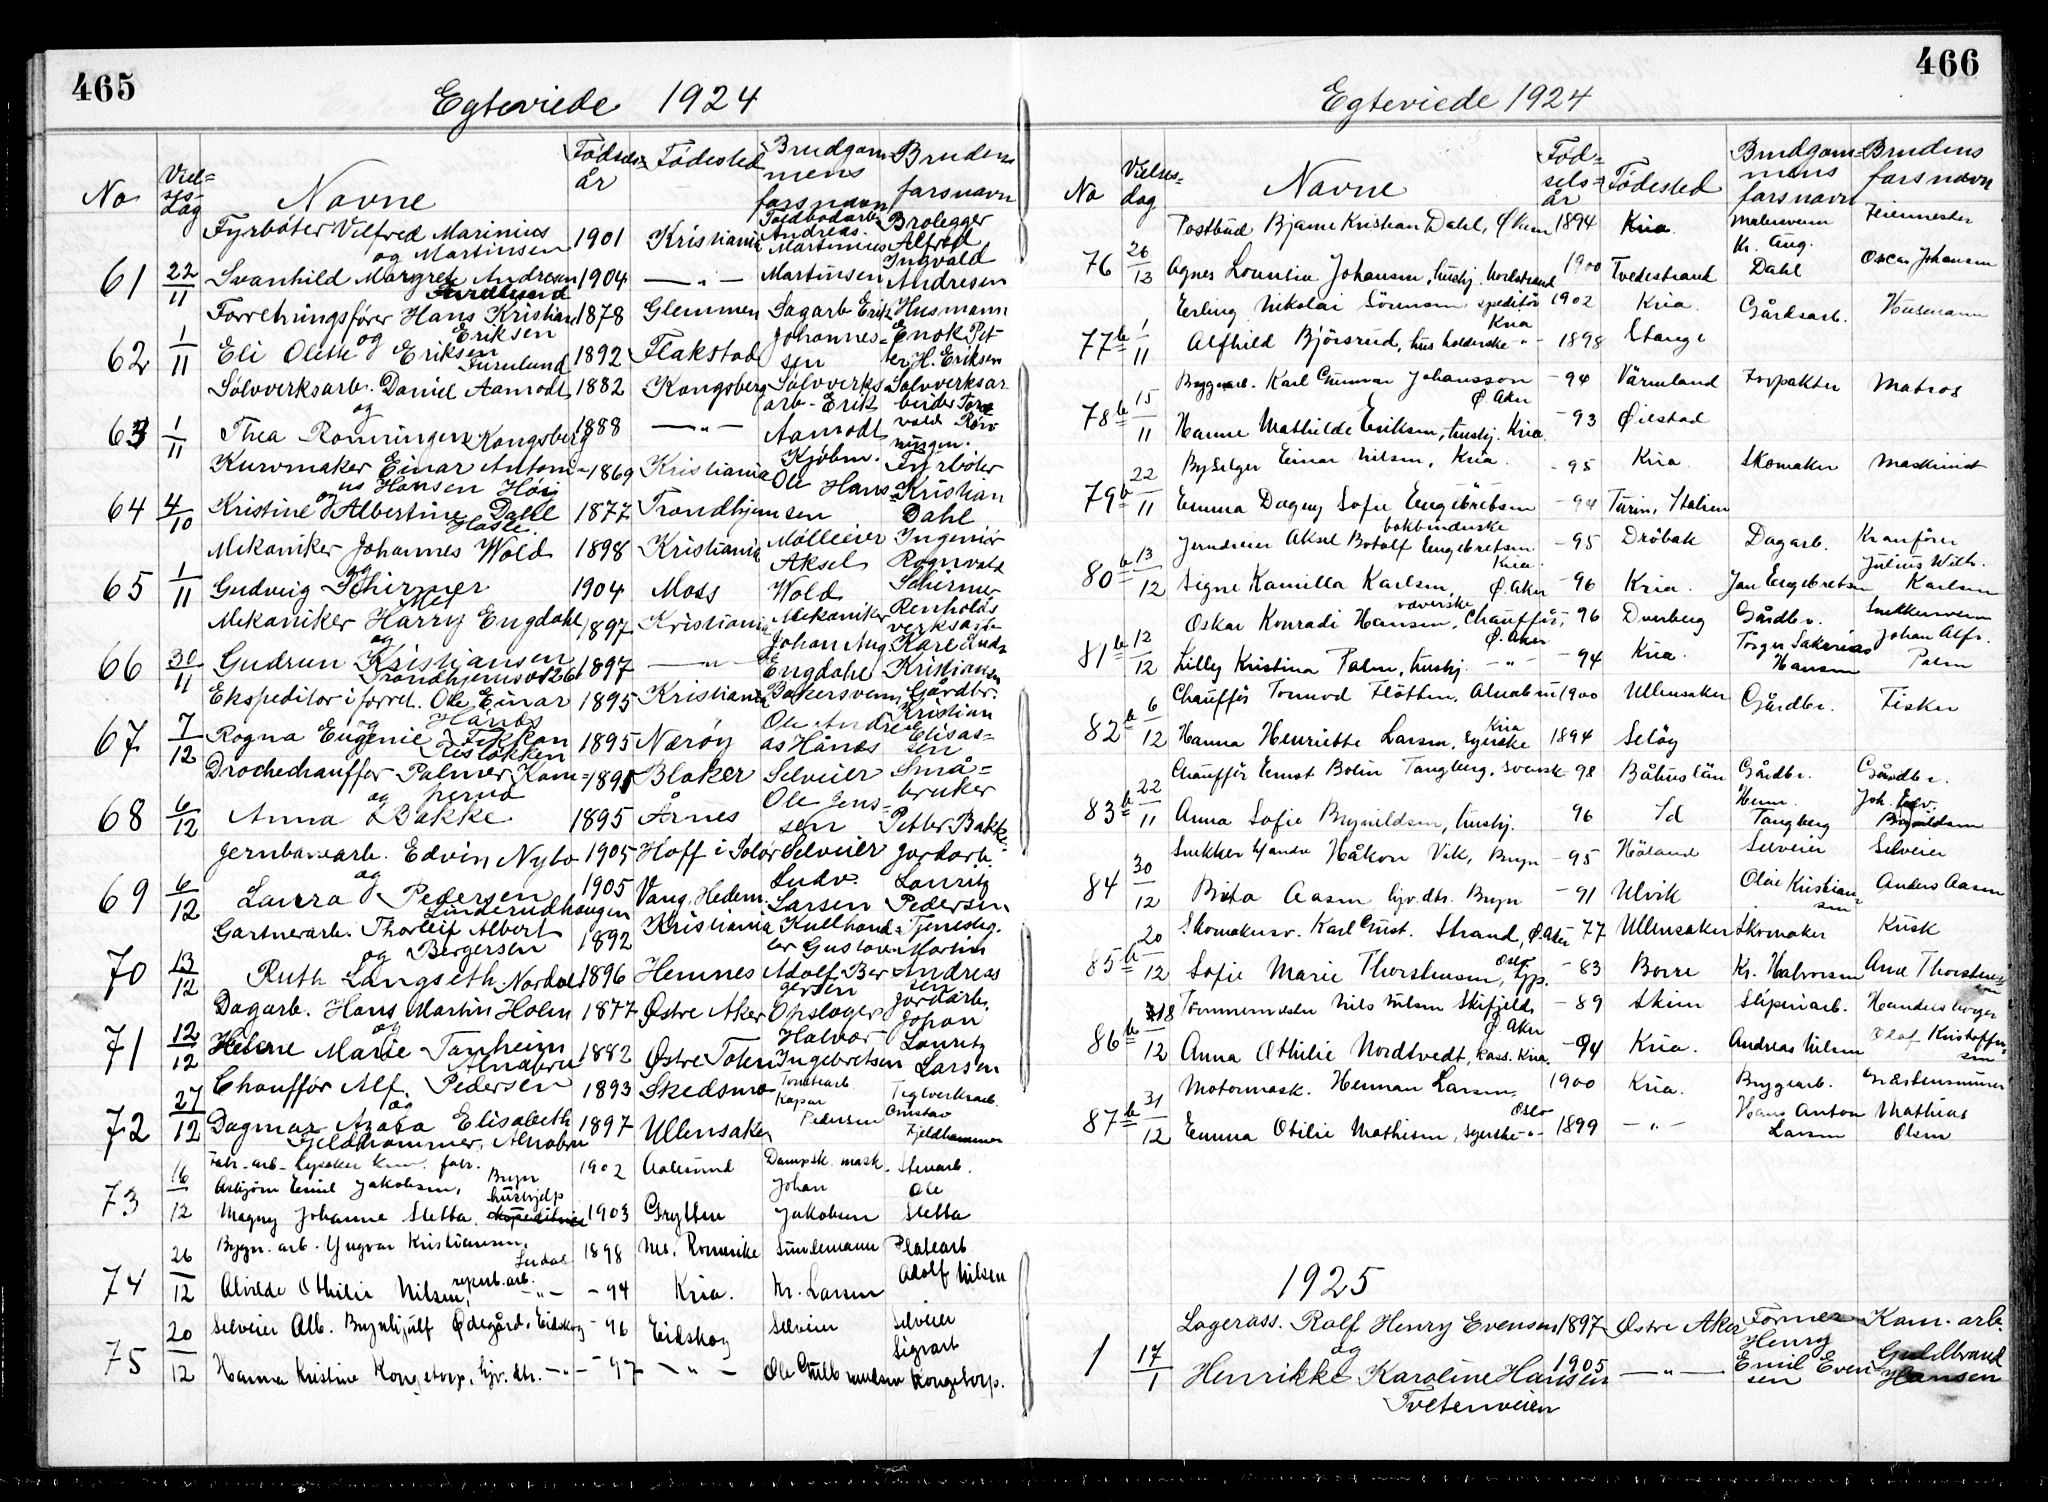 465
Egteviede 1924
No
Viel=
ses-
dag
Navne
Fødsels=
år
Fødested
Brudgom
mens
farsnavn
Brudens
farsnavn
Fyrbøter Vilfred Marinius Martinsen 1901 Kristiania Toldbodarb. Andreas Martinius Martinsen
og
61 22/11 Svanhild Margrete Andresen 1904 — " — Brolegger Alfred Ingvald Andresen
Furulund
Forretningsfører Hans Kristian Eriksen 1878 Glemmen Sagarb. Erik Johannes=sen
og
62 1/11 Eli Olette Eriksen 1892 Flakstad Husmann Enok Pet=ter H. Eriksen
Furulund
Sølvverksarb. Daniel Aamodt 1882 Kongsberg Sølvverks arb. Erik Aamodt
og
63 1/11 Thea Ronningen Kongsberg 1888 — " — Sølvverksarbeider Torvald Rønningen.
Kurvmaker Einar Antoni=us Hansen Høi 1869 Kristiania Kjøbm. Ole Hans=sen
og
64 4/10 Kristine Albertine Dahl 1877 Trondhjem Fyrbøter Kristian Dahl
Hasle
Mekaniker Johannes Wold 1898 Kristiania Møllieier Aksel Wold
og
65 1/11 Gudveig Schirmer 1904 Moss Ingeniør Ragnvald Schirmer
Mekaniker Harry Engdahl 1897 Kristiania Mekaniker Johan Aug. Engdahl
og
66 30/11 Gudrun Kristiansen 1897 — " — Renholdsverksarb. Karl Kristiansen
Trondhjemsv 126
Ekspeditør i forret. Ole Einar Hånes 1895 Kristiania Bakersvenn Ole Andreas Hånes
og
67 7/12 Ragna Eugenie Fikkan 1895 Nærøy Gårdbr. Kristian Elisas=sen
Risløkken
Drochechauffør Palmer 1891 Blaker Selveier Ole Jens=sen
og
68 6/12 Anna Bakke 1895 Årnes Små=bruker Petter Bakke
Jernbanearb. Edvin Nybo 1905 Hoff i Solør Selveier Ludv. Larsen
og
69 6/12 Laura Pedersen 1905 Vang, Hedem. Jordarb. Lauritz Pedersen
Linderudhaugen
Gartnerarb. Thorleif Albert Bergersen 1892 Kristiania Kullhand=ler Gustav Adolf Bergersen
og
70 13/12 Ruth Langseth Nordal 1896 Hemnes Tjenestg. Martin Andreassen
Dagarb. Hans Martin Holm 1877 Østre Aker Opslager Halvor Ingebretsen
og
71 12/12 Helene Marie Tanheim 1882 Østre Toten Jordarb. Johan Lauritz Larsen
Alnabru
Chauffør Alf Pedersen 1893 Skedsmo Tomtearb. Kaspar Pedersen
og
72 27/12 Dagmar Azora Elisabeth 1897 Ullensaker Teglverksarb. Gustav Fjeldhammer
Fjeldhammer, Alnabru
Fabr. arb. Lysaker kem. fabr.
73 16/12 Asbjørn Emil Jakobsen, Bryn 1902 Aalesund Dampsk. mask. Johan Jakobsen
Magny Johanne Sletta, hushjelp 1903 Grytten Stenarb. Ole Sletta
Bygn. arb. Yngvar Kristiansen, 1898 Nes, Romerike Sundemann Kr. Larsen
74 26/12 Alvilde Othilie Nilsen, — " — – 94 Kria. Platearb Adolf Nilsen
Selveier Alb. Brynhjulf Ødegård, Eidskog – 96 Eidskog Selveier
75 20/12 Hanna Kristine Kongstorp, hjv. dtr. — " — 97 — " — Selveier Sigvart Kongstorp.
466
Egteviede 1924
No
Vielses=
dag
Navne
Fød=
sels=
år
Fødested
Brudgom=
mens
farsnavn
Brudens
farsnavn
Postbud Bjarne Kristian Dahl, 1894 Kria. Malersvenn Kr. Aug. Dahl
76 26/12 Agnes Lovinia Johansen, hushj. Nordstrand 1900 Tvedestrand Feiermester Oscar Johansen
Erling Nikolai Sörensen speditör Kria 1902 Kria. Gårdsarb.
77 b 1/11 Alfhild Björsrud, husholderske " 1898 Stange Husmann
Bryggearb. Karl Gunnar Johansson Ø. Aker – 94 Värmland Forpakter
78 b 15/11 Hanne Mathilde Eriksen, hushj. Kria – 93 Øiestad Matros
Byselger Einar Nilsen, Kria. – 95 Kria. Skomaker
79 b 22/11 Emma Dagny Sofie Engebretsen – 94 Turin, Italien Maskinist
bokbinderske
Jerndreier Aksel Botolf Engebretsen Kria. – 95 Dröbak Dagarb. Jan Engebretsen
80 b 13/12 Signe Kamilla Karlsen, Ø. Aker – 96 Kria. Kranfører Julius Wilh. Karlsen
væverske
Oskar Konradi Hansen, Chauffør, Ø. Aker 96 Dverberg Gårdbr. Torger Sakarias Hansen
81 b 12/12 Lilly Kristina Palm, hushj. — " — – 94 Kria. Snekkersvenn Johan Alfr. Palm
Chauffør Tormod Fløtten, Alnabru 1900 Ullensaker Gårdbr.
82 b 6/12 Hanna Henriette Larsen, syerske Kria 1894 Selöy Fisker
Chauffør Ernst Bolin Tangberg, svensk 98 Båhuslän Gårdbr. Herm. Tangberg
83 b 22/11 Anna Sofie Brynildsen, hushj. 96 Id Gårdbr. Joh. Edv. Brynildsen
Snekker Håkon Vik, Bryn – 95 Höland Selveier Olai Kristiansen
84 30/12 Brita Aasen hjv. dtr. Bryn – 91 Ulvik Selveier Anders Aasen
Skomakersv. Karl Gust. Strand, Ø. Aker 77 Ullensaker Skomaker Kr. Halvorsen
85 b 20/12 Sofie Marie Thorstensen, Oslo – 83 Borre Kusk And. Thorstensen
Tömmermester Nils Nilsen Skifjeld Ø. Aker – 89 Skien Sliperiarb. Andreas Nilsen
86 b 18/12 Anna Othilie Nordtvedt, kass. Kria. – 94 Kria. Handelsborger Olaf Kristoffersen
Motormask. Herman Larsen 1900 Kria. Bryggearb. Hans Anton Larsen
87 b 31/12 Emma Otilie Mathisen, syerske Oslo 1899 — " — Mathias Olsen
1925
Lagerass. Rolf Henry Evensen 1897 Østre Aker Former Henry Emil Even=sen
og
1 17/1 Henrikke Karoline Hansen 1905 — " — Kom. arb. Guldbrand Hansen
Tvetenveien